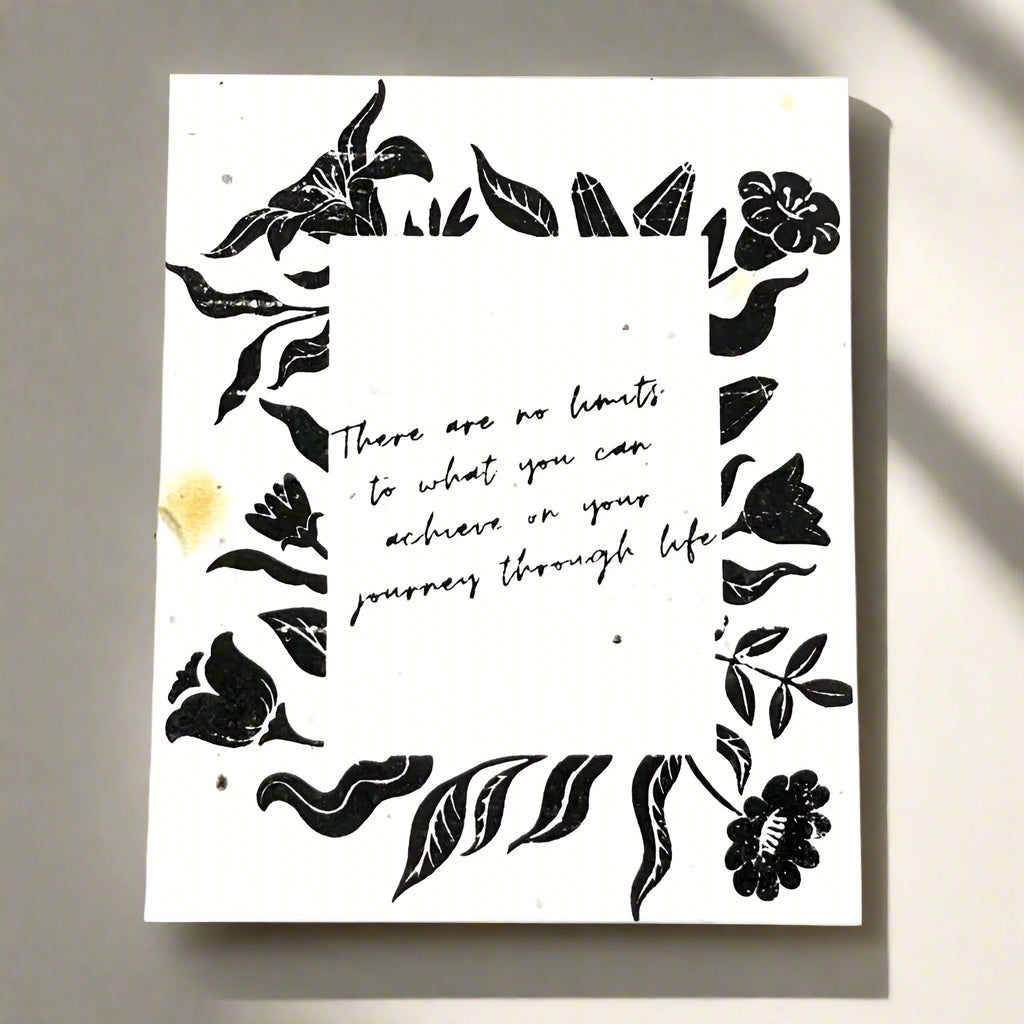 There are no limits
to what you can
achieve on your
journey through life